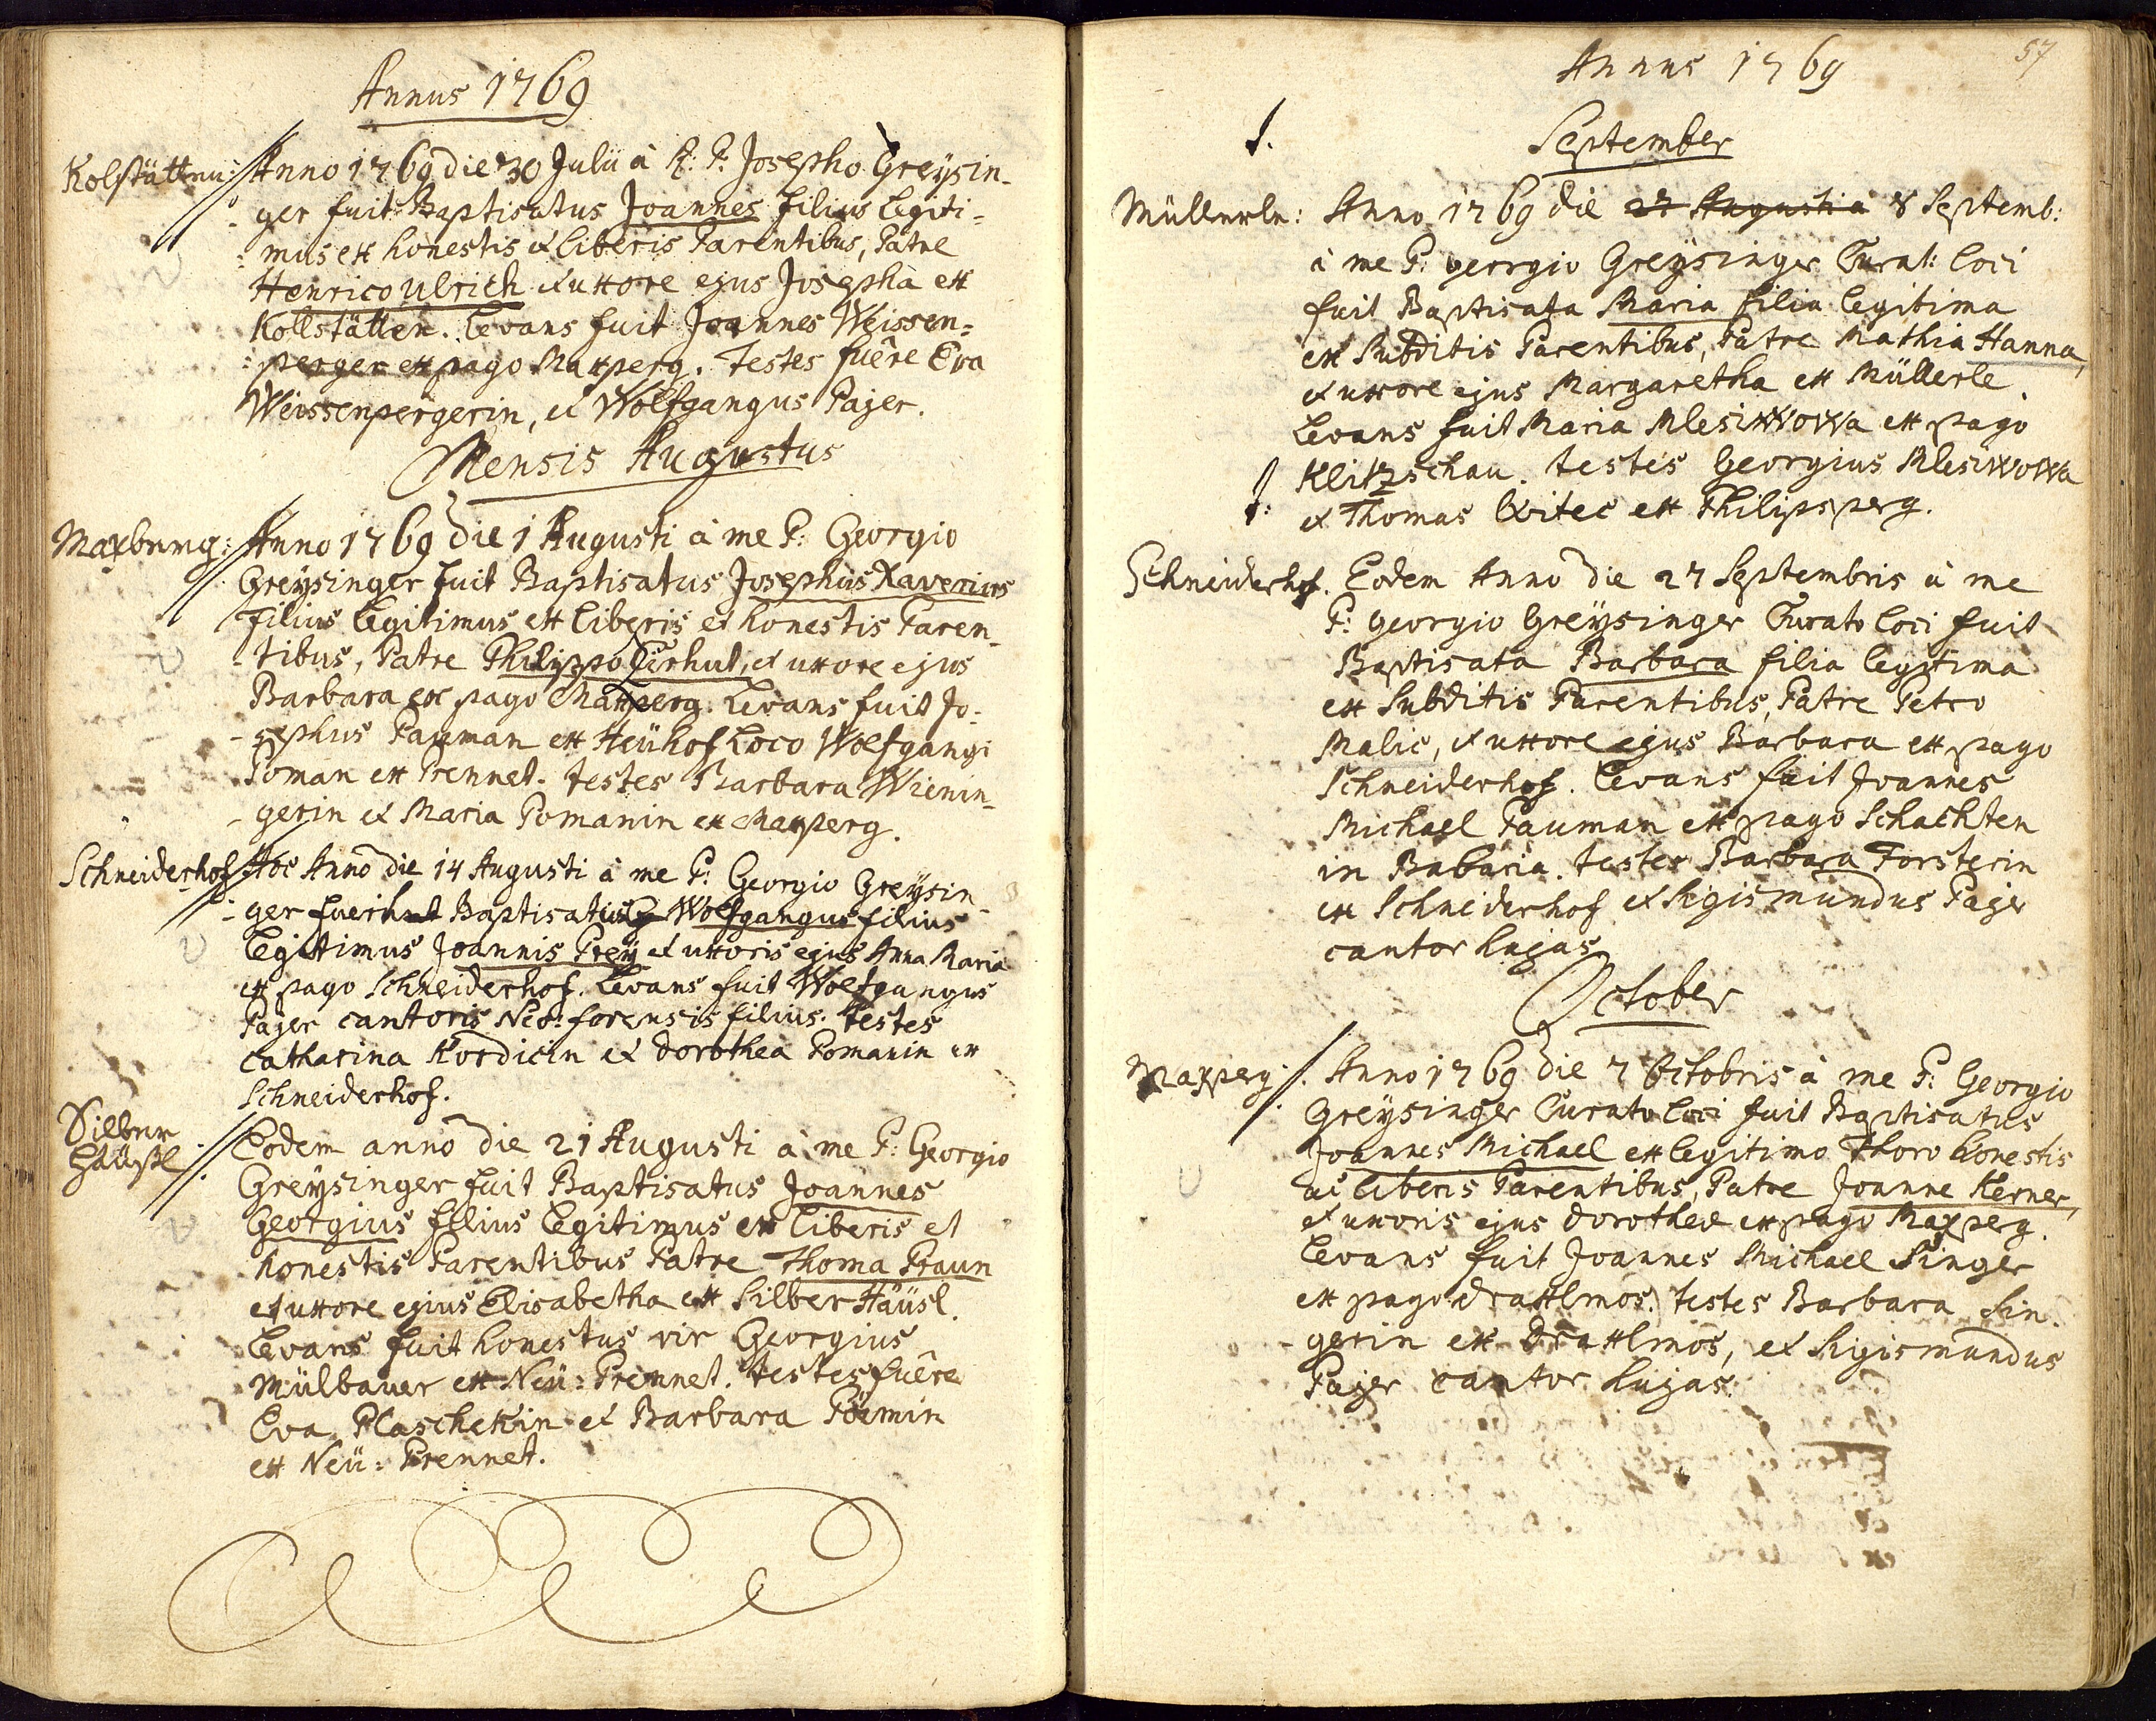 Annus 1769
Kolstätten: Anno 1769 die 30 Julii à R: P: Josepho Greÿsin-
ger fuit Baptisatus Joannes filius legiti-
mus ex honestis et liberis Parentibus, Patre
Henrico Ulrich et uxore ejus Josepha ex
Kollstätten. Levans fuit Joannes Weissen=
perger ex pago Maxperg. Testes fuêre Eva
Weissenpergerin, et Wolfgangus Pajer.
Mensis Augustus
Maxburg: Anno 1769 die 1 Augusti à me P: Georgio
Greÿsinger fuit Baptisatus Josephus Xaverius
filius legitimus ex liberis et honestis Paren-
tibus, Patre Philippo, et uxore ejus
Barbara ex pago Maxperg. Levans fuit Jo-
sephus Pauman ex Heühof Loco Wolfgangi
Poman ex Prennet. testes Barbara Wienin-
gerin et Maria Pomanin ex Maxperg.
Schneiderhof Hoc Anno die 14 Augusti à me P: Georgio Greÿsin-
ger Baptisatus Wolfgangus filius
legitimus Joannis Preÿ et uxoris ejus Anna Maria
ex pago Schneiderhof. Levans fuit Wolfgangus
Pajer cantoris Neo: forensis filius. testes
Catharina Kordicin et Dorothea Pomanin ex
Schneiderhof.
Silber
Häüsl Eodem anno die 21 Augusti à me P: Georgio
Greÿsinger fuit Baptisatus Joannes
Georgius filius legitimus ex liberis et
honestis Parentibus Patre Thoma Praun
et uxore ejus Elisabetha ex Silber Häüsl.
Levans fuit honestus vir Georgius
Mülbauer ex Neü: Prennet. testes fuêre
Eva Plaschekin et Barbara
ex Neü: Prennet.
57
Annus 1769
September
Müllerle: Anno 1769 die 27 Augusti à 8 Septemb:
à me P: georgio Greÿsinger Curat: loci
fuit Baptisata Maria filia legitima
ex Subditis Parentibus, Patre Mathia Hanna,
et uxore ejus Margaretha ex Müllerle.
Levans fuit Maria Mlesiwowa ex pago
Klitzschau. testes Georgius Mlesiwowa
et Thomas ex Philipsperg.
Schneiderhof. Eodem Anno die 27 Septembris à me
P: georgio Greÿsinger Curato loci fuit
Baptisata Barbara filia legitima
ex Subditis Parentibus, Patre Petro
Malic, et uxore ejus Barbara ex pago
Schneiderhof. Levans fuit Joannes
Michael Pauman ex pago Schachten
in Babaria. testes Barbara Forsterin
ex Schneiderhof et Sigismundus Pajer
cantor hujas
October
Maxperg: Anno 1769 die 7 Octobris à me P: Georgio
Greÿsinger Curato loci fuit Baptisatus
Joannes Michael ex legitimo Thoro honestis
ac liberis Parentibus, Patre Joanne Kerner,
et uxoris ejus Dorotheæ ex pago Maxperg.
Levans fuit Joannes Michael Singer
ex pago Draxlmos. testes Barbara Sin-
gerin ex Draxlmos, et Sigismundus
Pajer cantor hujas.